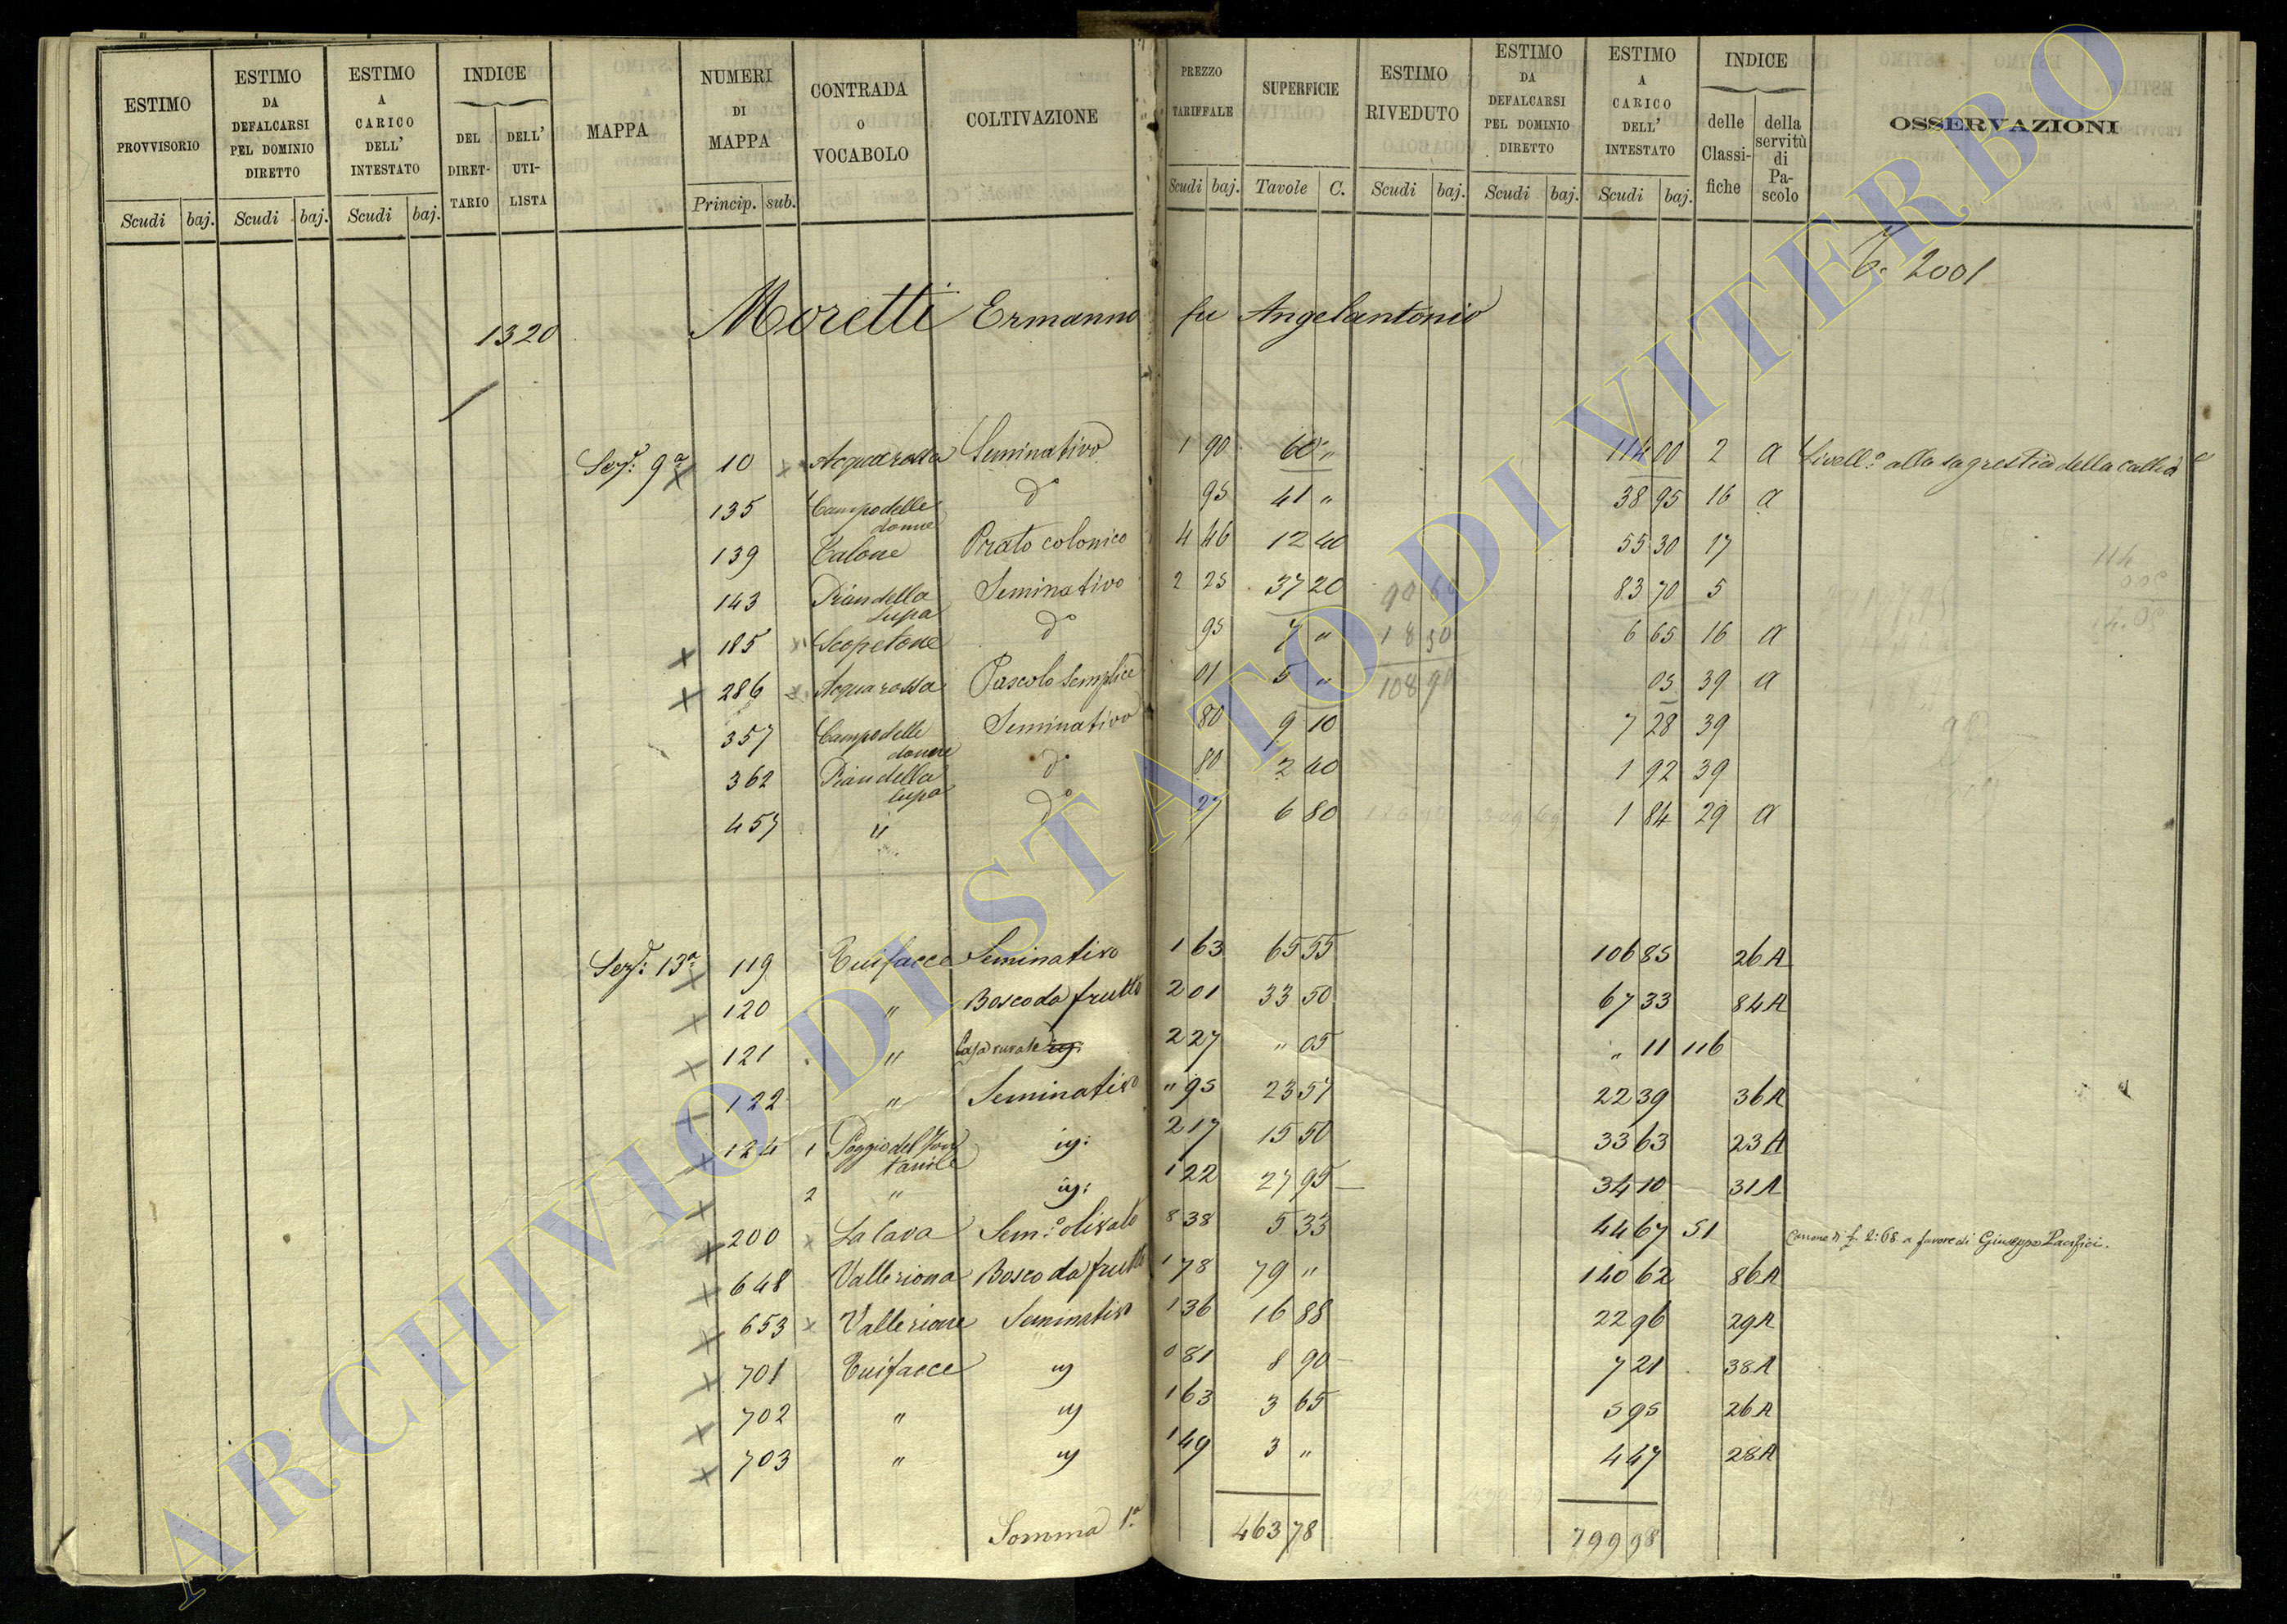 ESTIMO PROVVISORIO | ESTIMO DA DEFALCARSI PEL DOMINIO DIRETTO | ESTIMO A CARICO DELL' INTESTATO | INDICE DEL DIRET-TARIO | DELL' UTI-LISTA | MAPPA | NUMERI DI MAPPA | CONTRADA O VOCABOLO | COLTIVAZIONE | PREZZO TARIFFALE | SUPERFICIE | ESTIMO RIVEDUTO | ESTIMO DA DEFALCARSI PEL DOMINIO DIRETTO | ESTIMO A CARICO DELL' INTESTATO | INDICE delle Classi-fiche | della servitù di Pa-scolo | OSSERVAZIONI
Scudi baj. Scudi baj. Scudi baj. Princip. sub. Scudi baj. Tavole C. Scudi baj. Scudi baj. Scudi baj.
2001
1320 Moretti Ermanno fu Angelantonio
Sez. 9a 10 Acquarossa Seminativo 1 90 60 " 114 00 2 a Livell.o alla sagrestia della
135 Campo delle donne do 95 41 " 38 95 16 a
139 Prato colonico 4 46 12 40 55 30 17
143 Pian della lupa Seminativo 2 25 37 20 83 70 5
185 Scopetone do 95 7 " 6 65 16 a
286 Acquarossa Pascolo semplice 01 5 " 05 39 a
108 90
357 Campo delle donne Seminativo 80 9 10 7 28 39
362 Pian della lupa do 80 2 40 1 92 39
457 " do 27 6 80 1 84 29 a
Sez. 13a 119 Seminativo 1 63 65 55 106 85 26 A
120 " Bosco da frutto 2 01 33 50 67 33 84 A
121 " Casa rurale 2 27 " 05 " 11 116
122 " Seminativo " 95 23 57 22 39 36 A
124 1 Poggio del Fontanile 2 17 15 50 33 63 23 A
2 " 1 22 27 95 34 10 31 A
200 La cava Sem.o olivato 8 38 5 33 44 67 51 Canone di 2:68 a favore di Giuseppe Pacifici.
648 Valleriona Bosco da frutto 1 78 79 " 140 62 86 A
653 Vallerione Seminativo 1 36 16 88 22 96 29 A
701 0 81 8 90 7 21 38 A
702 " 1 63 3 65 5 95 26 A
703 " 1 49 3 " 4 47 28 A
Somma 1a 463 78 799 98
ARCHIVIO DI STATO DI VITERBO